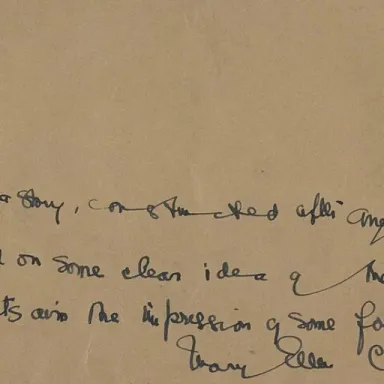 a story, constructed after any
on some clear idea of
its aim the impression of some fo
Mary Ellen C